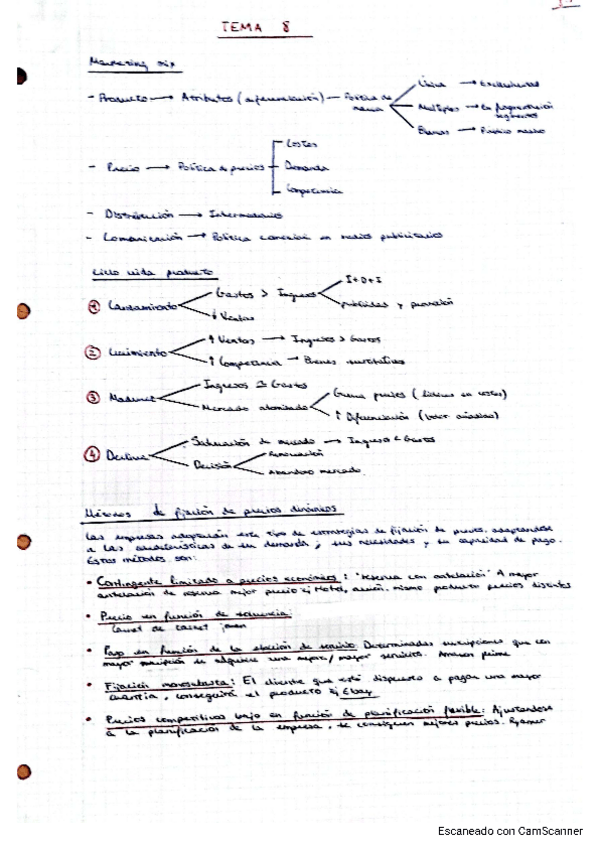 TEMA 8
Marketing mix
- Producto → Atributos (diferenciación) — Política de marca
Única →
Múltiples → segmentos
Blancas →
- Precio → Política de precios
Costes
Demanda
Competencia
- Distribución → Intermediarios
- Comunicación → Política en medios publicitarios
Ciclo vida producto
① Lanzamiento
Gastos > Ingresos
I+D+I
publicidad y promoción
↓ Ventas
② Crecimiento
↑ Ventas → Ingresos > Gastos
↑ Competencia → Bienes sustitutivos
③ Madurez
Ingresos Gastos
Mercado atomizado
Guerra precios (líderes en costes)
↑ Diferenciación (valor añadido)
④ Declive
Saturación de mercado → Ingreso < Gastos
Decisión
Renovación
Abandono mercado.
Métodos de fijación de precios dinámicos
Las empresas adoptarán este tipo de estrategias de fijación de precios, adaptándose
a las características de su demanda, sus necesidades y su capacidad de pago.
Estos métodos son:
• Contingente limitado a precios económicos: "reserva con antelación" A mayor
antelación de reserva mejor precio ej Hotel, avión, mismo producto precios distintos
• Precio en función de
Carnet de joven
• Pago en función de la elección de servicio Determinadas suscripciones que con
mayor suscripción se adquiere una mejora/mayor servicio. Amazon prime
• Fijación monosubasta: El cliente que esté dispuesto a pagar una mayor
cuantía, conseguirá el producto ej Ebay
• Precios competitivos bajo en función de planificación flexible: Ajustándose
a la planificación de la empresa, se consiguen mejores precios. Ryanair
Escaneado con CamScanner